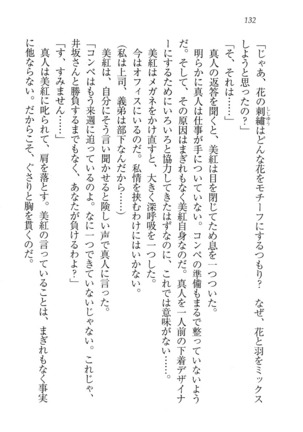 132
「じゃあ、花の刺繍はどんな花をモチーフにするつもり？　なぜ、花と羽をミックス
しようと思ったの？」
「そ、それは……」
真人の返答を聞くと、美紅は目を閉じてため息を一つついた。
明らかに真人は仕事が手についていない。コンペの準備もまるで整っていないよう
だ。そして、その原因はまぎれもなく美紅自身なのだ。真人を一人前の下着デザイナ
ーにするためにいろいろと協力してきたはずなのに、これでは意味がない……。
美紅はメガネをかけ直すと、大きく深呼吸を一つした。
今はオフィスにいるのだ。私情を挟むわけにはいかない。
（私は上司、義弟は部下なんだから……）
美紅は、自分にそう言い聞かせると険しい声で真人に言った。
「コンペはもう来週に迫っているのよ。なに一つできていないじゃない。これじゃ、
井坂さんと勝負するまでもなく、あなたが負けるわよ？」
「す、すみません……」
真人は美紅に叱られて、肩を落とす。美紅の言っていることは、まぎれもなく事実
に他ならない。だからこそ、ぐさりと胸を貫くのだ。